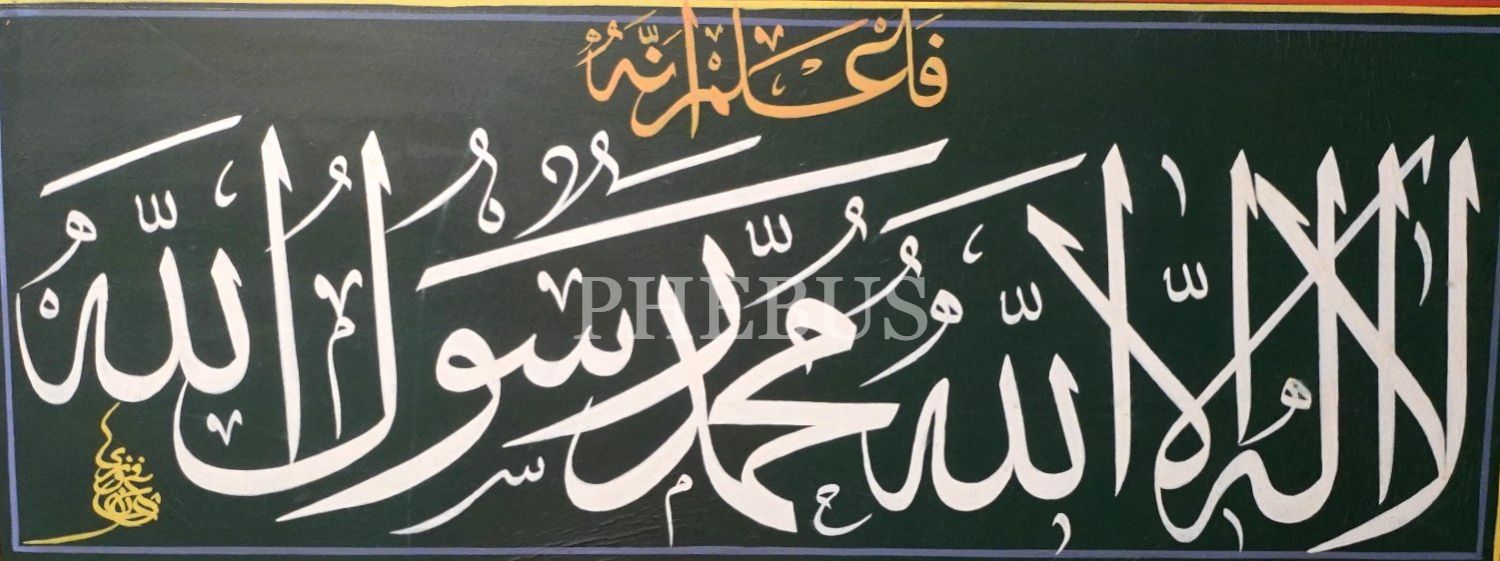 فَاعْلَمْ أَنَّهُ
لا إله إلا الله محمد رسول الله
PHEBUS